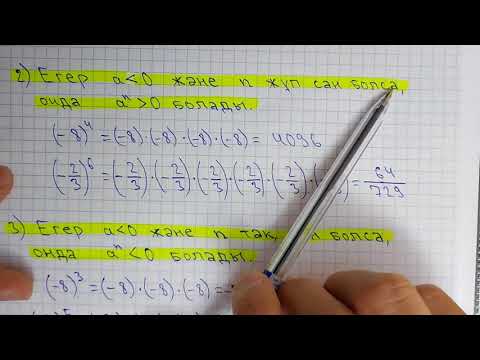 2) Егер a<0 және n жұп сан болса,
онда aⁿ>0 болады.
(-8)⁴ = (-8)·(-8)·(-8)·(-8) = 4096
(-2/3)⁶ = (-2/3)·(-2/3)·(-2/3)·(-2/3)·(-2/3)·( = 64/729
3) Егер a<0 және n болса,
онда aⁿ<0 болады.
(-8)³ = (-8)·(-8)·(-8) =